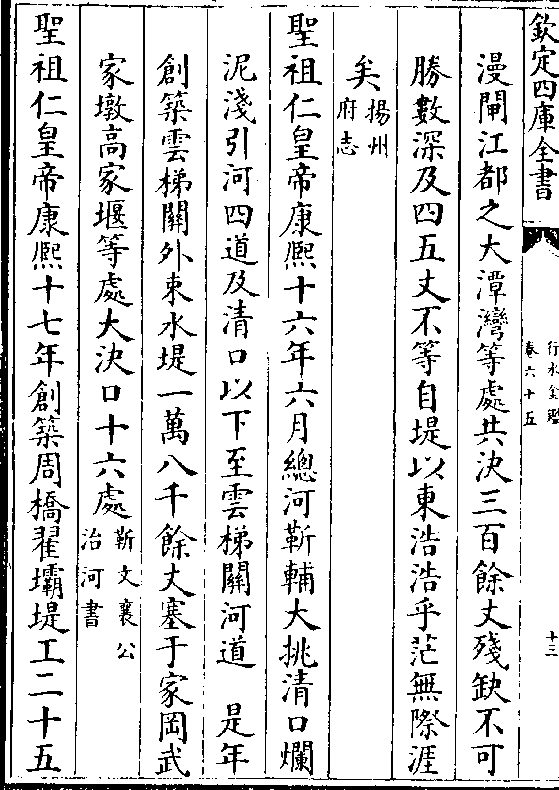 欽定四庫全書
行水金鑑
卷六十五
十三
漫閘江都之大潭灣等處共決三百餘丈殘缺不可
勝數深及四五丈不等自堤以東浩浩乎茫無際涯
矣揚州府志
聖祖仁皇帝康熙十六年六月總河靳輔大挑清口爛
泥淺引河四道及清口以下至雲梯關河道 是年
創築雲梯關外束水堤一萬八千餘丈塞于家岡武
家墩高家堰等處大決口十六處靳文襄公治河書
聖祖仁皇帝康熙十七年創築周橋翟壩堤工二十五